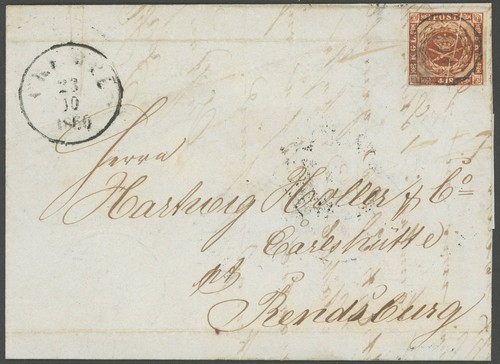 KGL POST FRM
4 S
23
10
1860
Herrn
Hartwig Holler & Co
Carlshütte
pr
Rendsburg